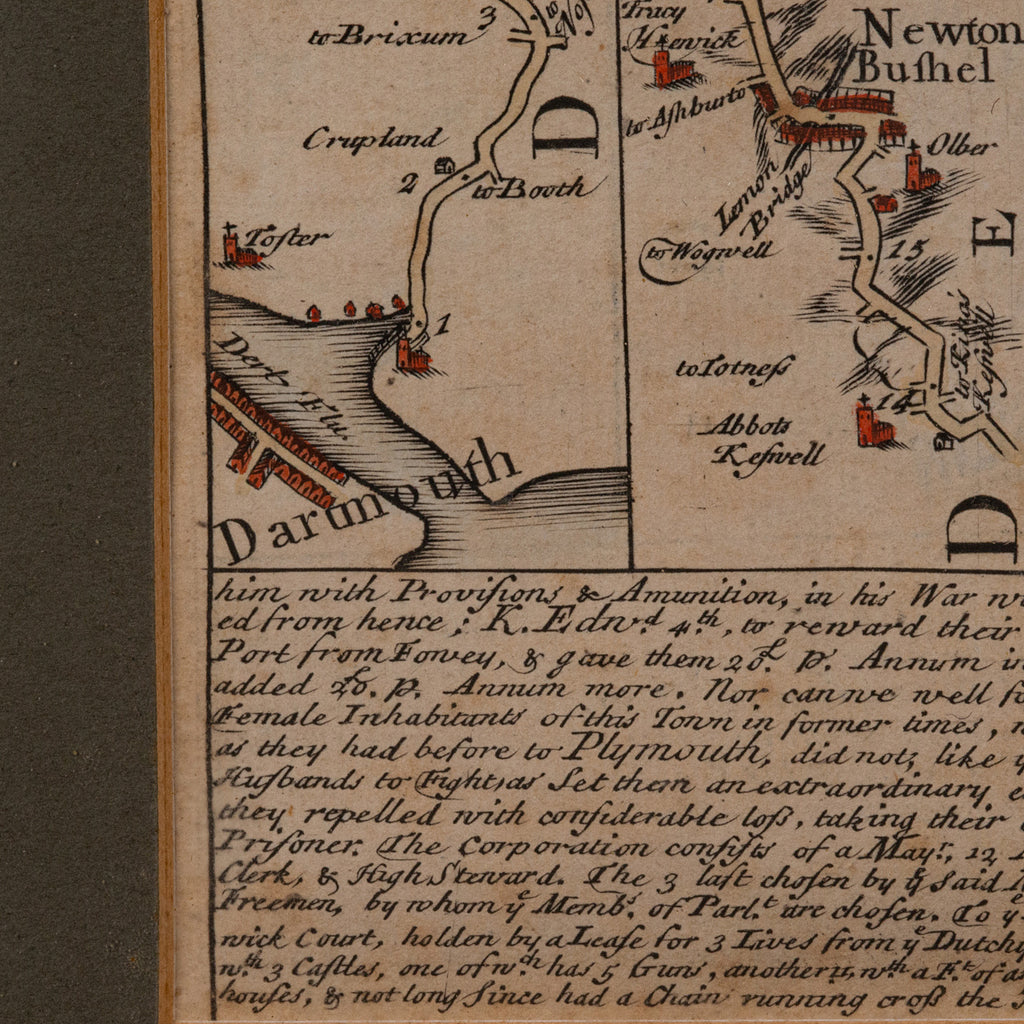 to Brixum
3
to
Crupland
2
to Booth
D
Toster
1
Dert Flu.
Dartmouth
Tracy
Newton
Buſhel
to Aſhburto
Olber
Lemon
Bridge
to Wogwell
15
E
to Totneſs
to King's
Keſwell
14
Abbots
Keſwell
D
him with Proviſions & Amunition, in his War
ed from hence; K. Edw.d 4.th, to reward their
Port from Fowey, & gave them 20£. p. Annum in
added 20£. p. Annum more. Nor can we well
Female Inhabitants of this Town in former times,
as they had before to Plymouth, did not, like
Huſbands to Fight, as Set them an extraordinary
they repelled with conſiderable loſs, taking their
Priſoner. The Corporation conſiſts of a May.r, 12
Clerk, & High Steward. The 3 laſt choſen by ye Said
Freemen, by whom ye Memb.s of Parl.t are choſen. To ye
wick Court, holden by a Leaſe for 3 Lives from ye Dutchy
w.th 3 Caſtles, one of w.ch has 5 Guns, another w.th a F.t of
houſes, & not long Since had a Chain running croſs the